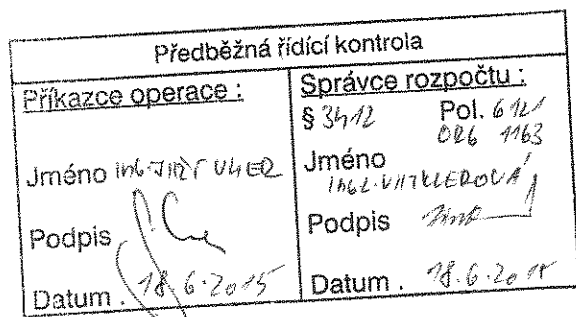 Předběžná řídící kontrola
Příkazce operace :
Jméno ING. JIŘÍ UHER
Podpis
Datum . 18.6.2015
Správce rozpočtu :
§ 3412 Pol. 6121
ORG 1163
Jméno
Podpis
Datum . 18.6.2015